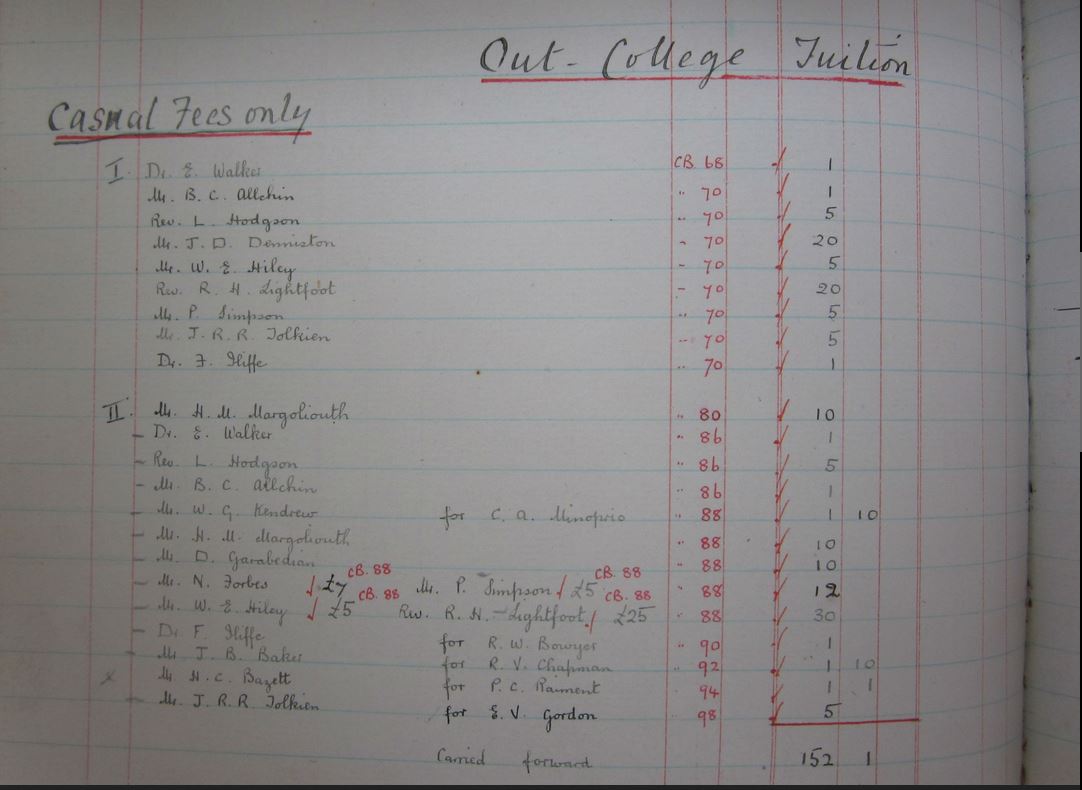 Out - College Tuition
Casual Fees only
I. Dr. E. Walker CB. 68 1
Mr. B. C. Allchin " 70 1
Rev. L. Hodgson " 70 5
Mr. J. D. Denniston " 70 20
Mr. W. E. Hiley " 70 5
Rev. R. H. Lightfoot " 70 20
Mr. P. Simpson " 70 5
Mr. J. R. R. Tolkien " 70 5
Dr. F. Iliffe " 70 1
II. Mr. H. M. Margoliouth " 80 10
- Dr. E. Walker " 86 1
- Rev. L. Hodgson " 86 5
- Mr. B. C. Allchin " 86 1
- Mr. W. G. Kendrew for C. A. Minoprio " 88 1 10
- Mr. H. M. Margoliouth " 88 10
- Mr. D. Garabedian " 88 10
- Mr. N. Forbes £7 CB. 88 Mr. P. Simpson £5 CB. 88 " 88 12
- Mr. W. E. Hiley £5 CB. 88 Rev. R. H. Lightfoot £25 CB. 88 " 88 30
- Dr. F. Iliffe for R. W. Bowyer " 90 1
- Mr. J. B. Baker for R. V. Chapman " 92 1 10
x Mr. H. C. Bazett for P. C. Raiment 94 1 1
- Mr. J. R. R. Tolkien for E. V. Gordon " 98 5
Carried forward 152 1